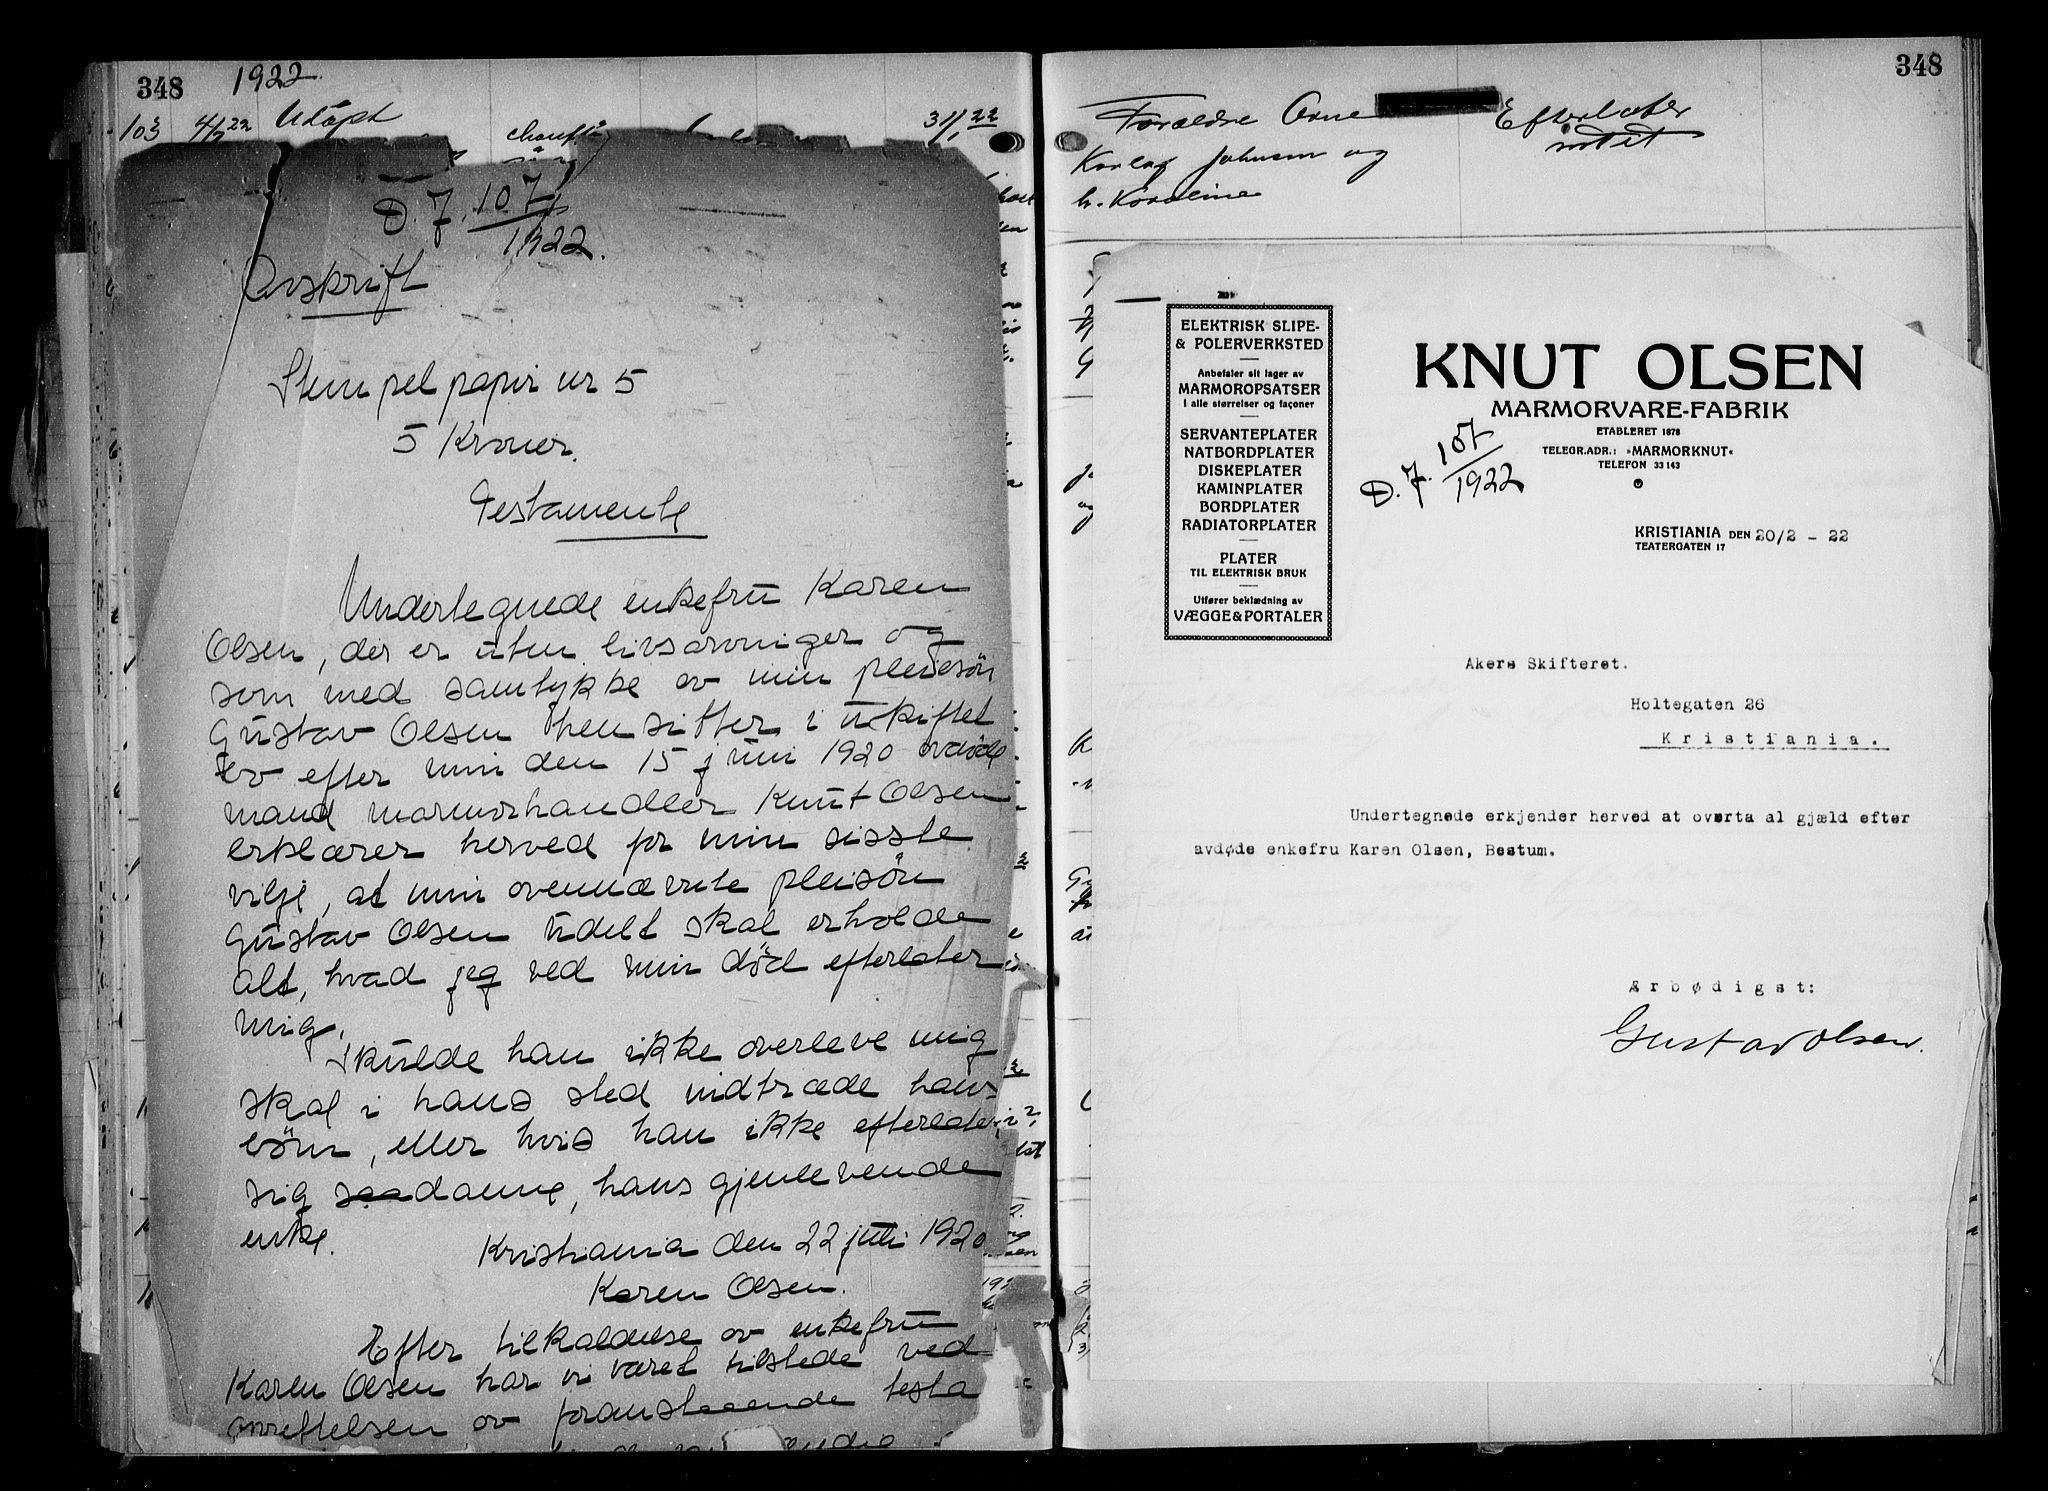 348
1922
103 4/2 22 Udøpt
31/1 22
D. 7. 107/1922.
Avskrift
Stempelpapir nr 5
5 Kroner.
Testamente
Undertegnede enkefru Karen
Olsen, der er uten livsarvinger og
som med samtykke av min pleiesøn
Gustav Olsen hensitter i uskiftet
bo efter min den 15 juni 1920 avdøde
mand marmorhandler Knut Olsen
erklærer herved for min sisste
vilje, at min ovennævnte pleisøn
Gustav Olsen udelt skal erholde
alt, hvad jeg ved min død efterlater
mig.
Skulde han ikke overleve mig
skal i hans sted indtræde hans
børn, eller hvis han ikke efterlater
sig saadanne, hans gjenlevende
enke.
Kristiania den 22 juli 1920
Karen Olsen.
Efter tilkaldelse av enkefru
Karen Olsen har vi været tilstede ved
oprettelsen av foranstaaende testa
348
Forældre Arne
Efterlater
intet
Karlof Johnsen og
h. Karoline
ELEKTRISK SLIPE-
& POLERVERKSTED
Anbefaler sit lager av
MARMOROPSATSER
i alle størrelser og façoner
SERVANTEPLATER
NATBORDPLATER
DISKEPLATER
KAMINPLATER
BORDPLATER
RADIATORPLATER
PLATER
TIL ELEKTRISK BRUK
Utfører beklædning av
VÆGGE & PORTALER
KNUT OLSEN
MARMORVARE-FABRIK
ETABLERET 1878
TELEGR.ADR.: »MARMORKNUT«
TELEFON 33143
D. 7. 107/1922
KRISTIANIA DEN 20/2 - 22
TEATERGATEN 17
Akers Skifteret.
Holtegaten 26
Kristiania.
Undertegnede erkjender herved at overta al gjæld efter
avdøde enkefru Karen Olsen, Bestum.
Ærbødigst:
Gustav Olsen.